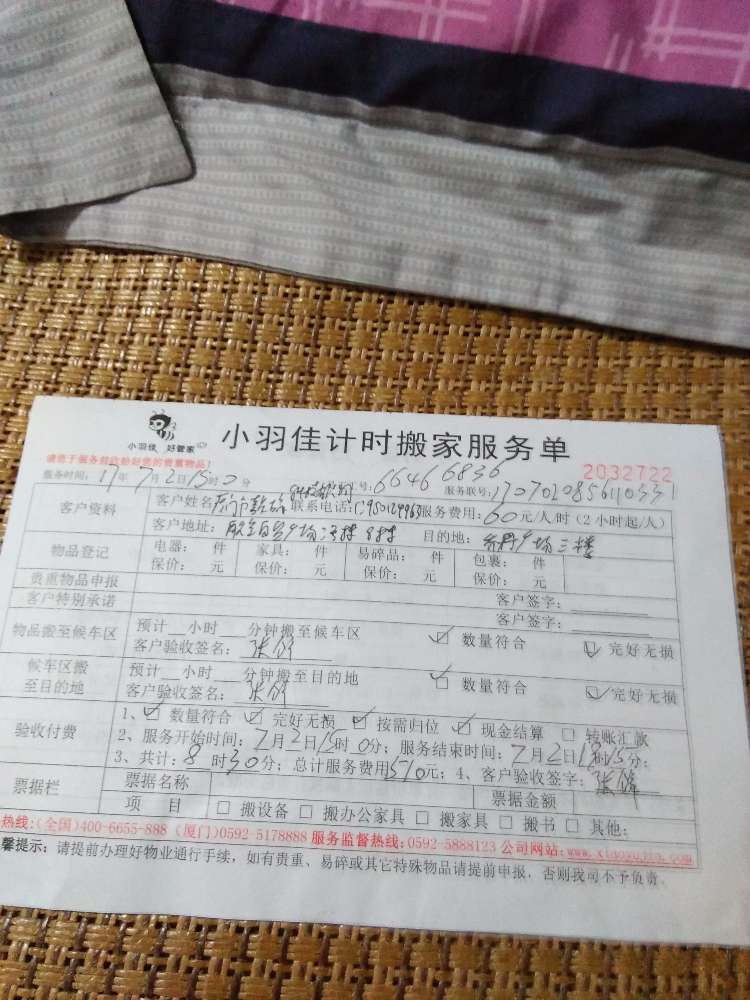 小羽佳 好管家
小羽佳计时搬家服务单
请您于服务前收验好您的贵重物品!
2032722
服务时间: 17年 7月2日15时0分 号: 66466836 服务联号:
客户资料 客户姓名 联系电话: 服务费用: 60元/人/时 (2小时起/人)
客户地址: 目的地: 广场三楼
物品登记 电器: 件 家具: 件 易碎品: 件 包裹: 件
保价: 元 保价: 元 保价: 元 保价: 元
贵重物品申报 客户签字:
客户特别承诺 客户签字:
物品搬至候车区 预计 小时 分钟搬至候车区 数量符合 完好无损
客户验收签名: 张
候车区搬至目的地 预计 小时 分钟搬至目的地 数量符合 完好无损
客户验收签名: 张
验收付费 1、 数量符合 完好无损 按需归位 现金结算 转账汇款
2、服务开始时间: 7月2日15时0分; 服务结束时间: 7月2日 时15分;
3、共计: 8时30分; 总计服务费用510元; 4、客户验收签字: 张
票据栏 票据名称 票据金额
项 目 搬设备 搬办公家具 搬家具 搬书 其他:
热线: (全国)400-6655-888 (厦门)0592-5178888 服务监督热线: 0592-5888123 公司网站:
馨提示: 请提前办理好物业通行手续, 如有贵重、易碎或其它特殊物品请提前申报, 否则我司不予负责.